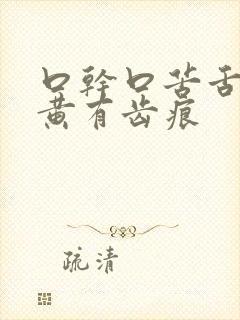 口幹口苦舌
黄有齿痕
疏清